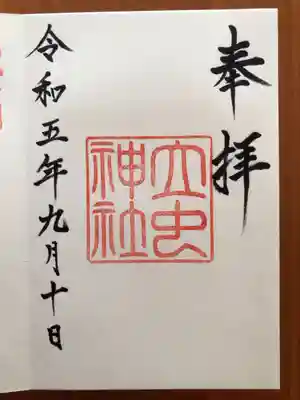 奉拝
大虫神社
令和五年九月十日